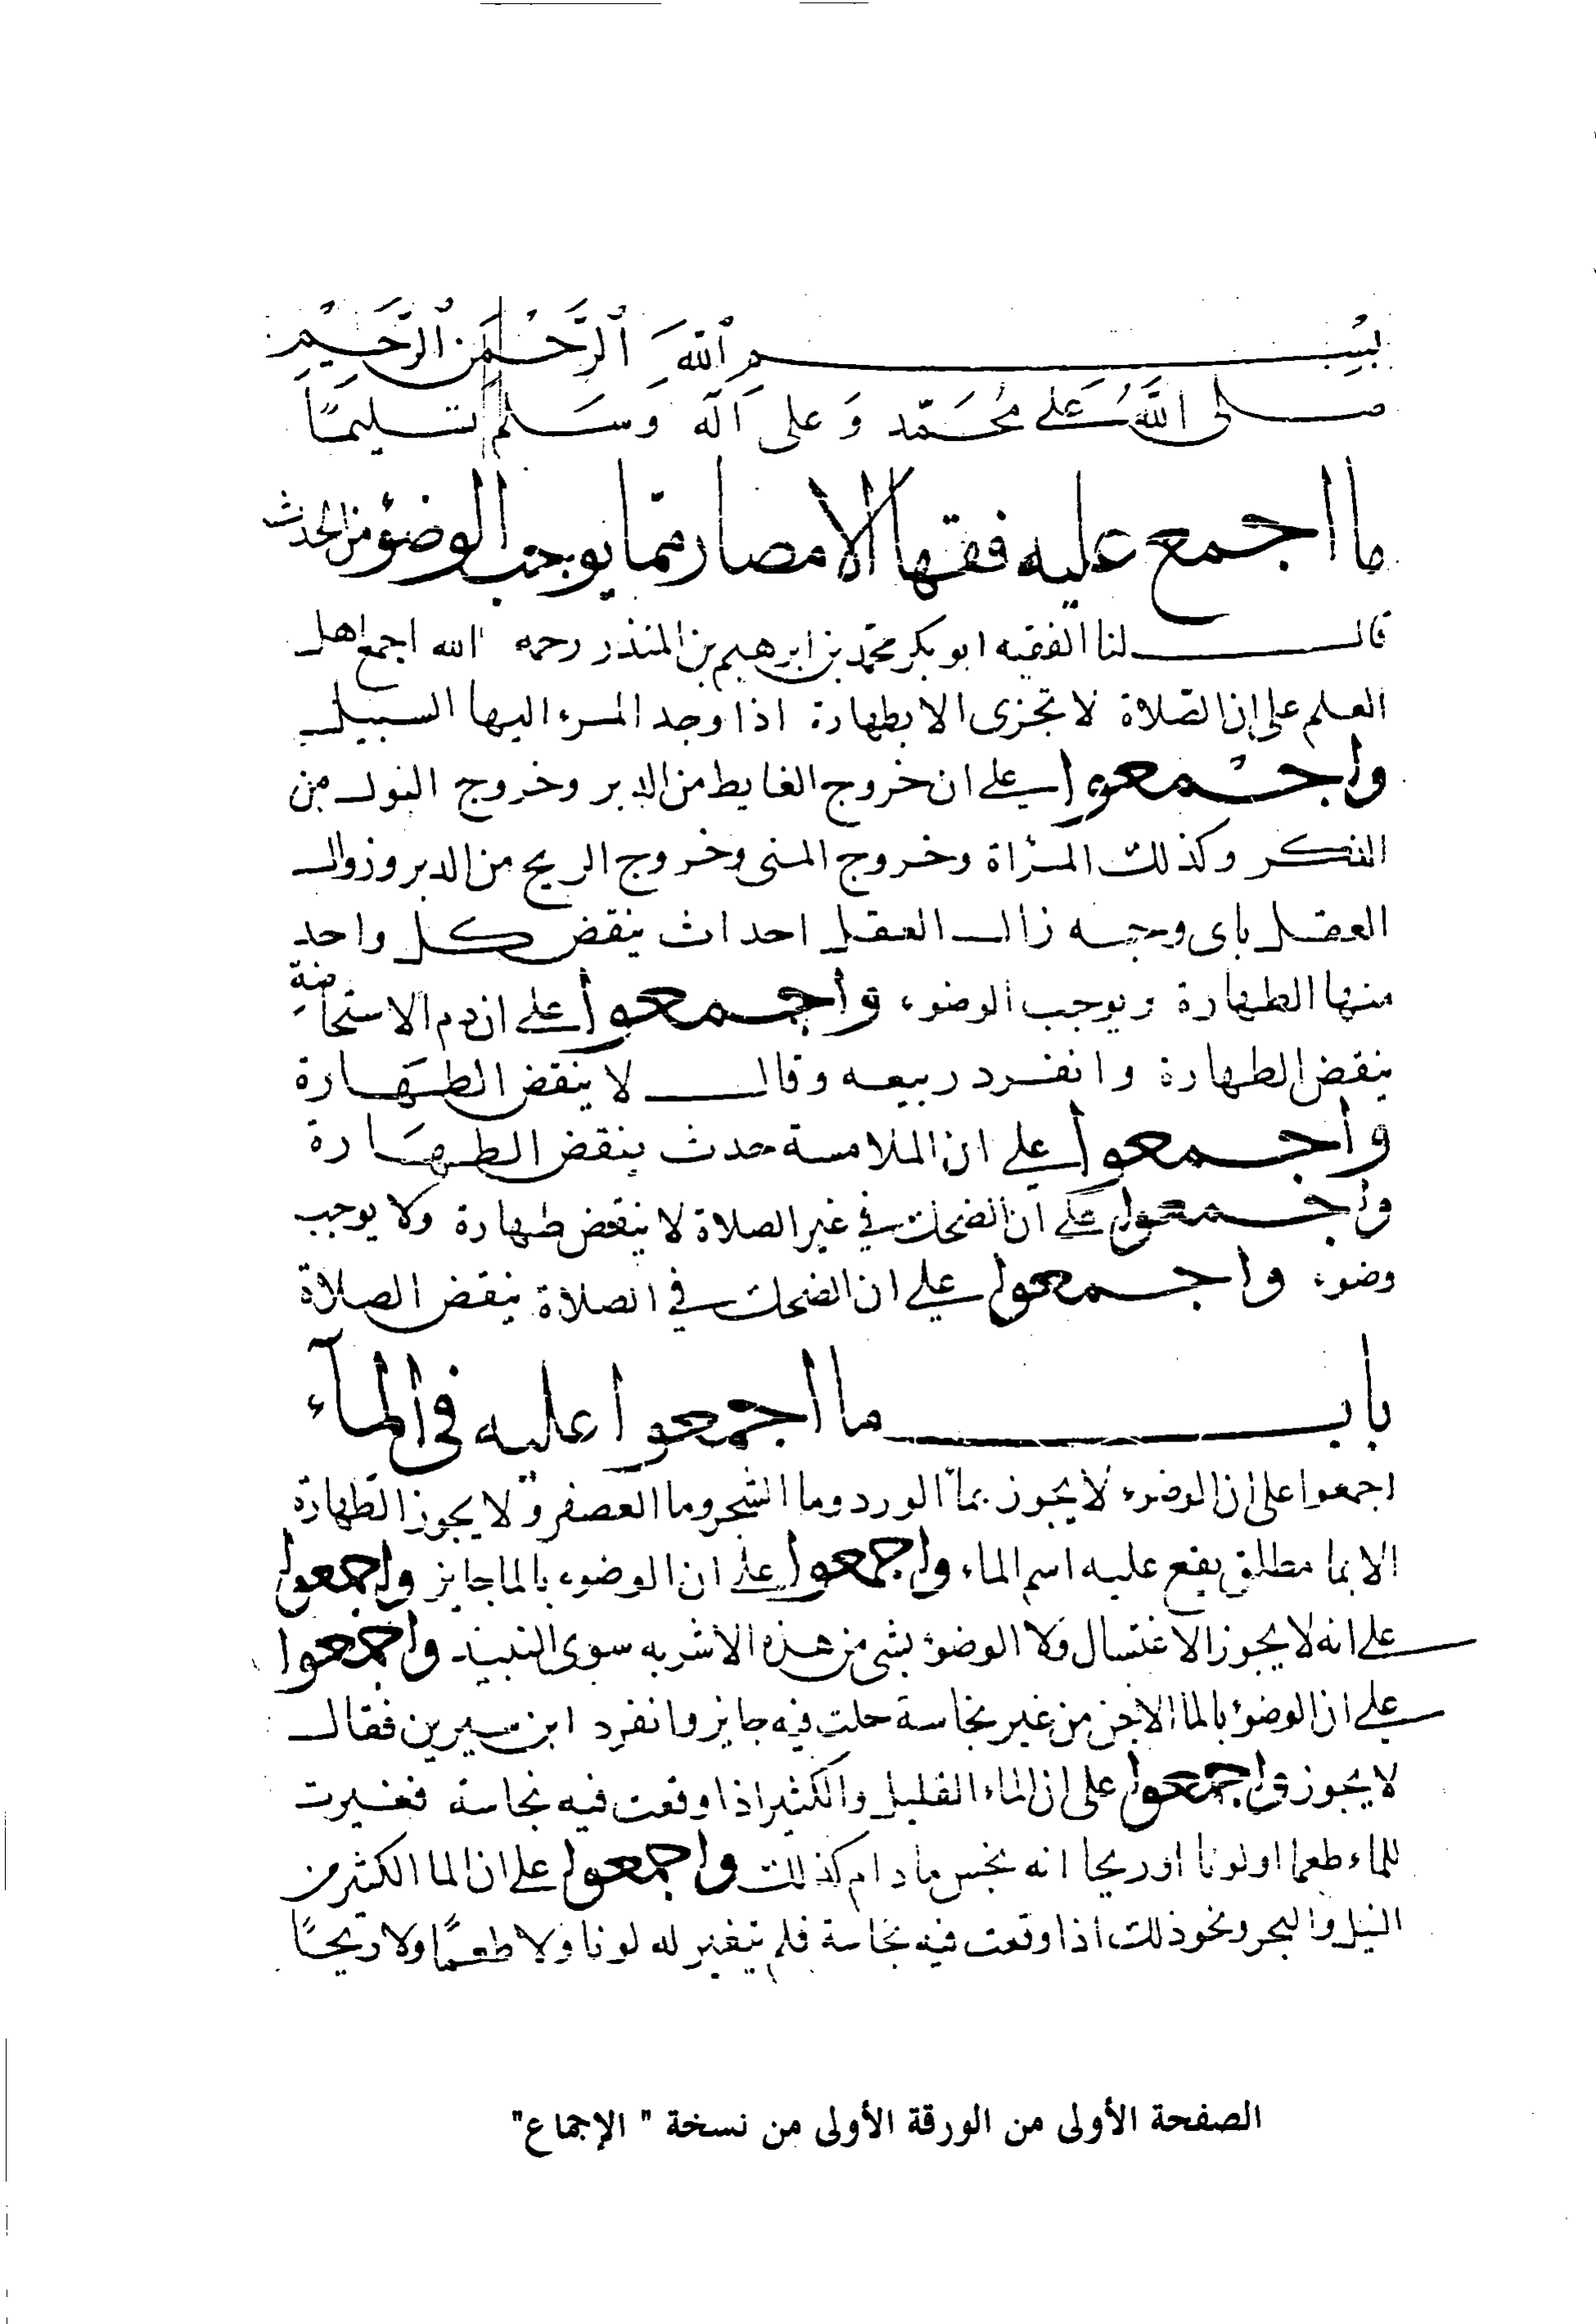 بِسْم اللهِ الرَّحْمٰنِ الرَّحِيْمِ
صلى اللَّهُ عَلَى مُحَمَّد وَعلى آله وَسَلم تسليمًا
ما اجمع عليه فقها الامصار مما يوجب الوضوء من الحدث
قال لنا الفقيه ابو بكر محمد بن ابرهيم بن المنذر رحمه الله اجمع اهل
العلم على ان الصلاة لا تجزى الا بطهارة اذا وجد المرء اليها السبيل
واجمعوا على ان خروج الغايط من الدبر وخروج البول من
الذكر وكذلك المرأة وخروج المنى وخروج الريح من الدبر وزوال
العقل باى وجه زال العقل احداث ينقض كل واحد
منها الطهارة ويوجب الوضوء واجمعوا على ان دم الاستحاضة
ينقض الطهارة وانفرد ربيعه وقال لا ينقض الطهَارة
واجمعوا على ان الملامسة حدث ينقض الطهَارة
واجمعوا على ان الضحك في غير الصلاة لا ينقض طهارة ولا يوجب
وضوء واجمعوا على ان الضحك في الصلاة ينقض الصلاة
باب ما اجمعوا عليه في المآء
اجمعوا على ان الوضوء لا يجوز بمآ الورد وما الشجر وما العصفر ولا يجوز الطهارة
الا بما مطلق يقع عليه اسم الماء واجمعوا على ان الوضوء بالما جايز واجمعوا
على انه لا يجوز الاغتسال ولا الوضوء بشى من هذه الاشربه سوى النبيذ واجمعوا
على ان الوضوء بالما الاجن من غير نجاسة حلت فيه جايز وانفرد ابن سيرين فقال
لا يجوز واجمعوا على ان الماء القليل والكثير اذا وقعت فيه نجاسة فغيرت
للماء طعما او لونا او ريحا انه نجس ما دام كذلك واجمعوا على ان الما الكثير من
النيل والبحر ونحو ذلك اذا وقعت فيه نجاسة فلم يتغير له لونا ولا طعمًا ولا ريحًا
الصفحة الأولى من الورقة الأولى من نسخة " الإجماع"